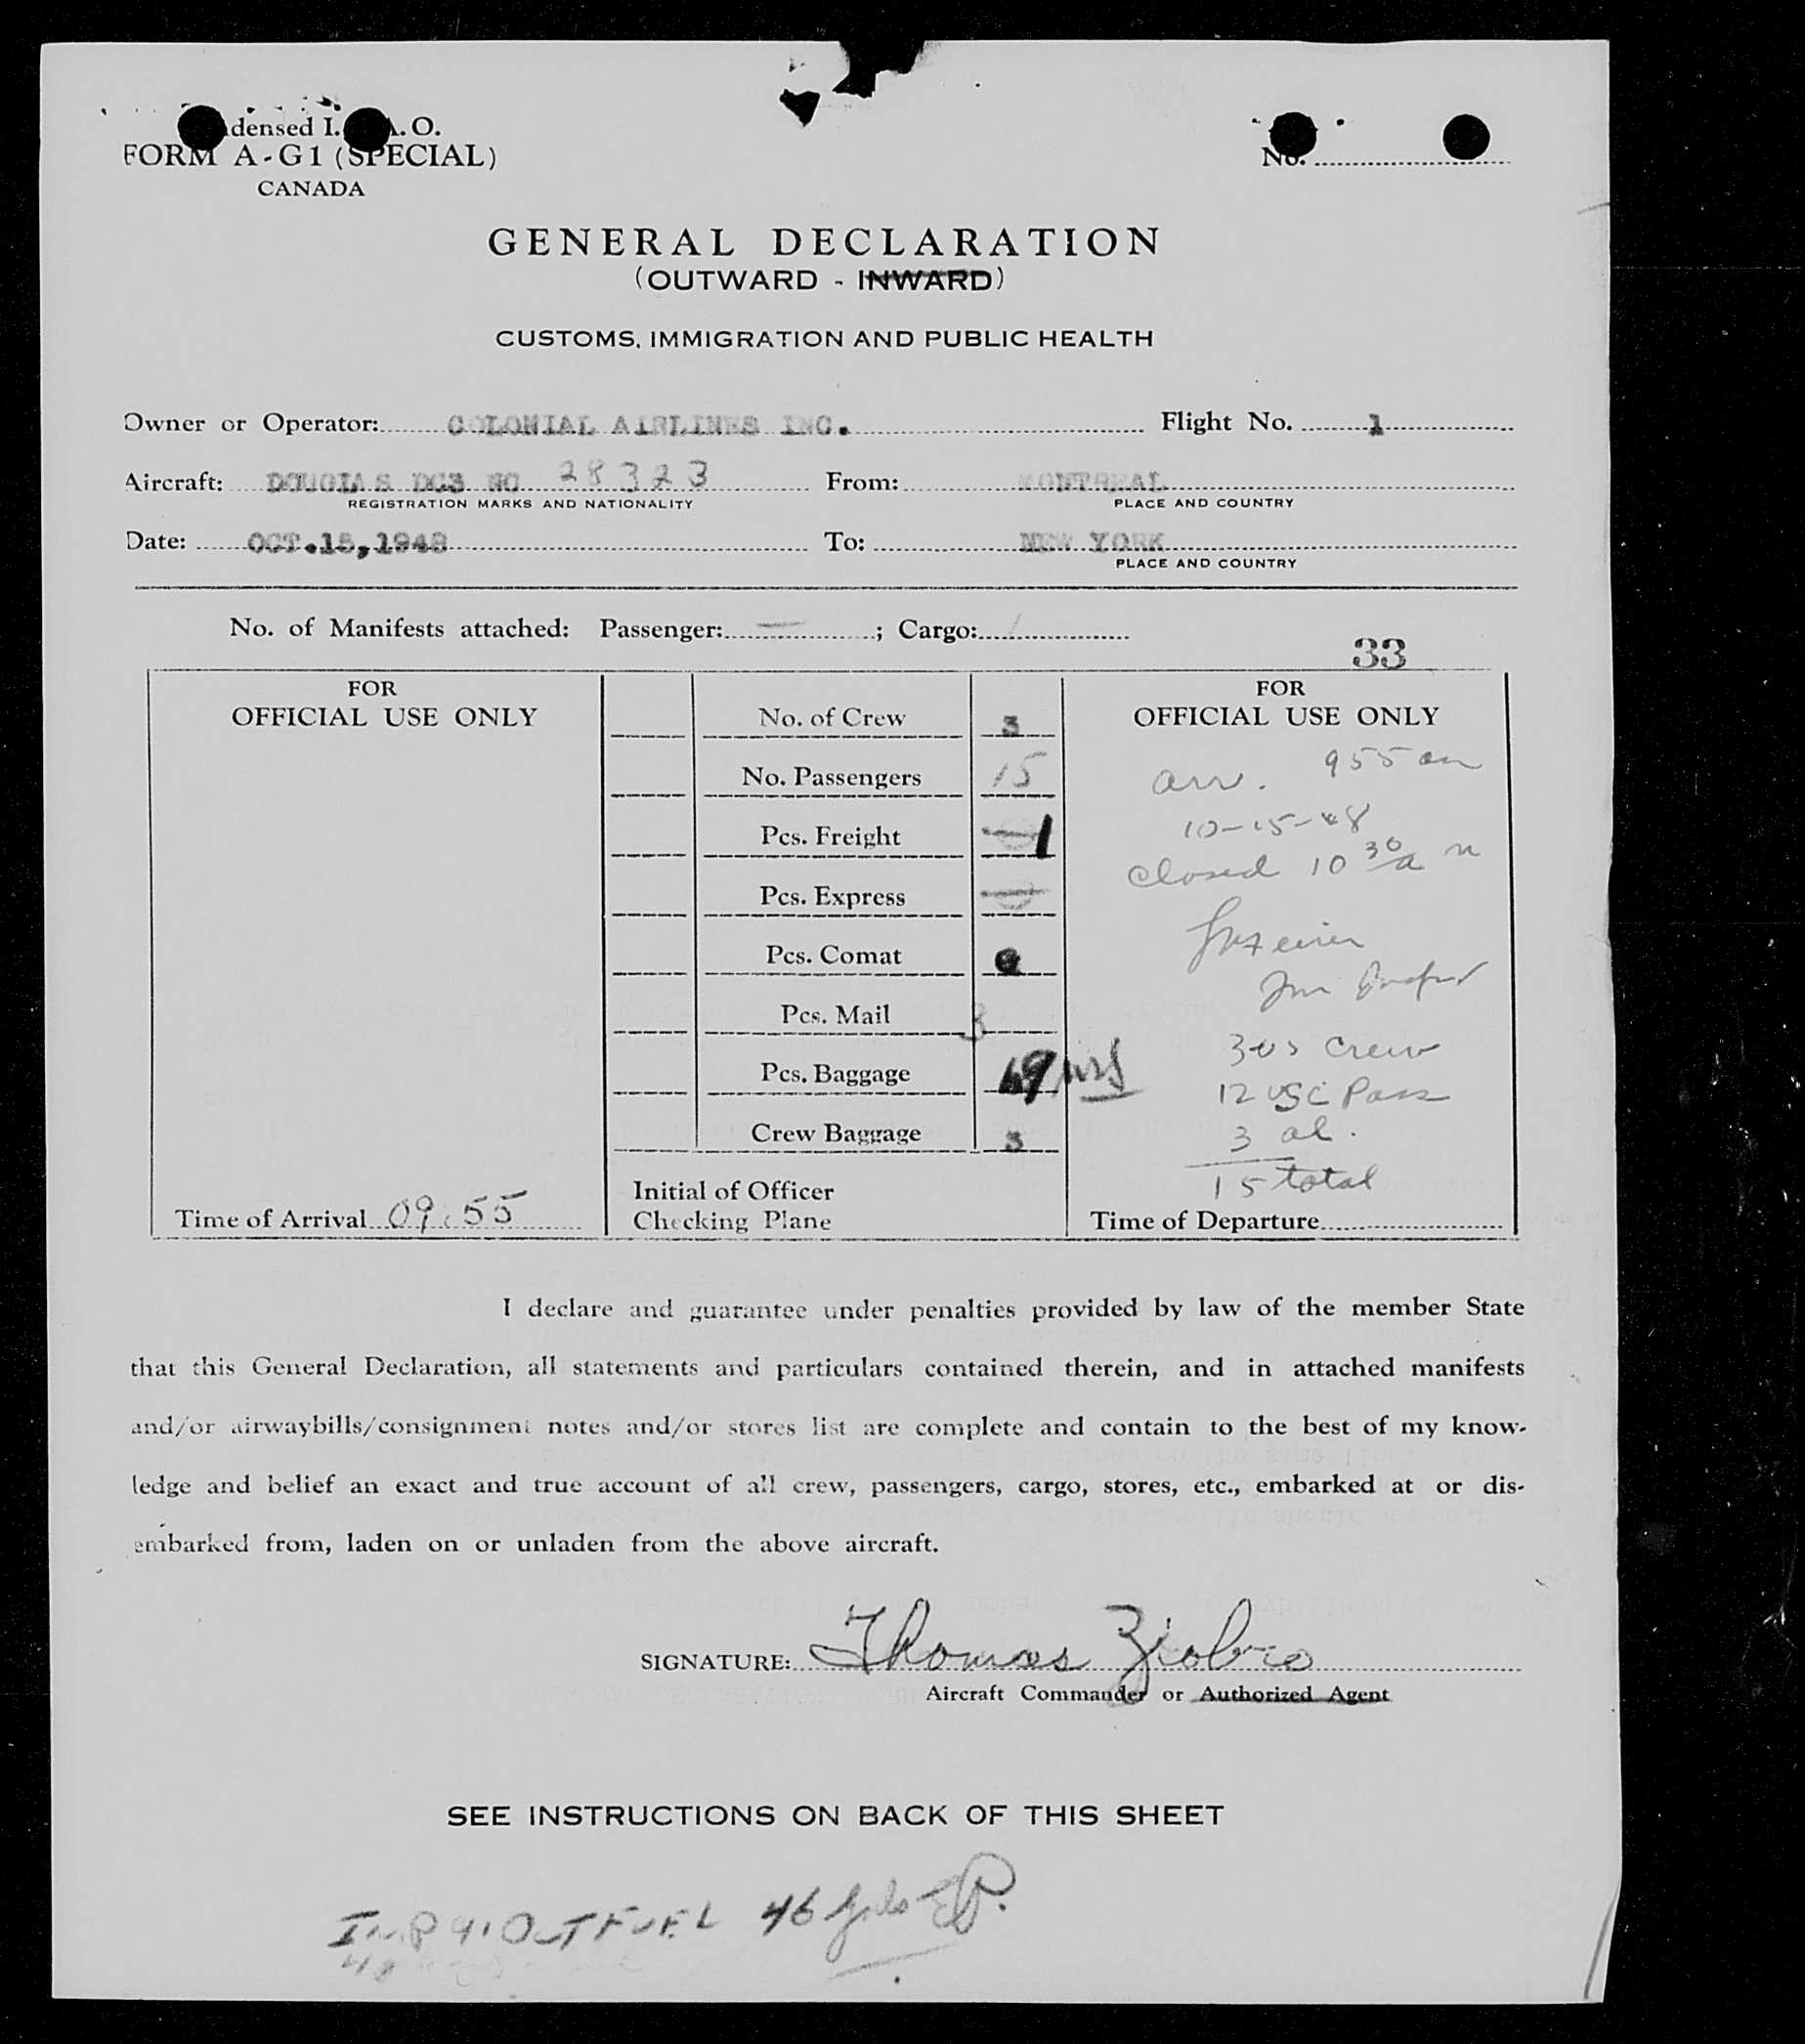 densed I. A.O.
FORM A-G1 (SPECIAL)
CANADA
No.
GENERAL DECLARATION
(OUTWARD - INWARD)
CUSTOMS, IMMIGRATION AND PUBLIC HEALTH
Owner or Operator: COLONIAL AIRLINES INC. Flight No. 1
Aircraft: DOUGLAS DC3 NC 28323 From: MONTREAL
REGISTRATION MARKS AND NATIONALITY PLACE AND COUNTRY
Date: OCT.15,1948 To: NEW YORK
PLACE AND COUNTRY
No. of Manifests attached: Passenger: — ; Cargo: /
33
FOR
OFFICIAL USE ONLY
Time of Arrival 09:55
No. of Crew 3
No. Passengers 15
Pcs. Freight 1
Pcs. Express
Pcs. Comat
Pcs. Mail 3
Pcs. Baggage 19
Crew Baggage 3
Initial of Officer
Checking Plane
FOR
OFFICIAL USE ONLY
arr. 955 am
10-15-48
Closed 10 30 a m
3 US Crew
12 USC Pass
3 al.
15 total
Time of Departure
I declare and guarantee under penalties provided by law of the member State
that this General Declaration, all statements and particulars contained therein, and in attached manifests
and/or airwaybills/consignment notes and/or stores list are complete and contain to the best of my know-
ledge and belief an exact and true account of all crew, passengers, cargo, stores, etc., embarked at or dis-
embarked from, laden on or unladen from the above aircraft.
SIGNATURE: Thomas Ziobro
Aircraft Commander or Authorized Agent
SEE INSTRUCTIONS ON BACK OF THIS SHEET
FUEL 46 gals